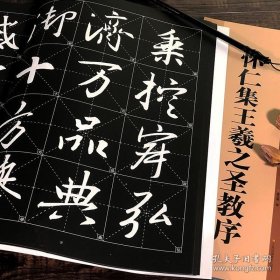 乘控寂弘
濟万品典
御十方
怀仁集王羲之圣教序
孔夫子旧书网